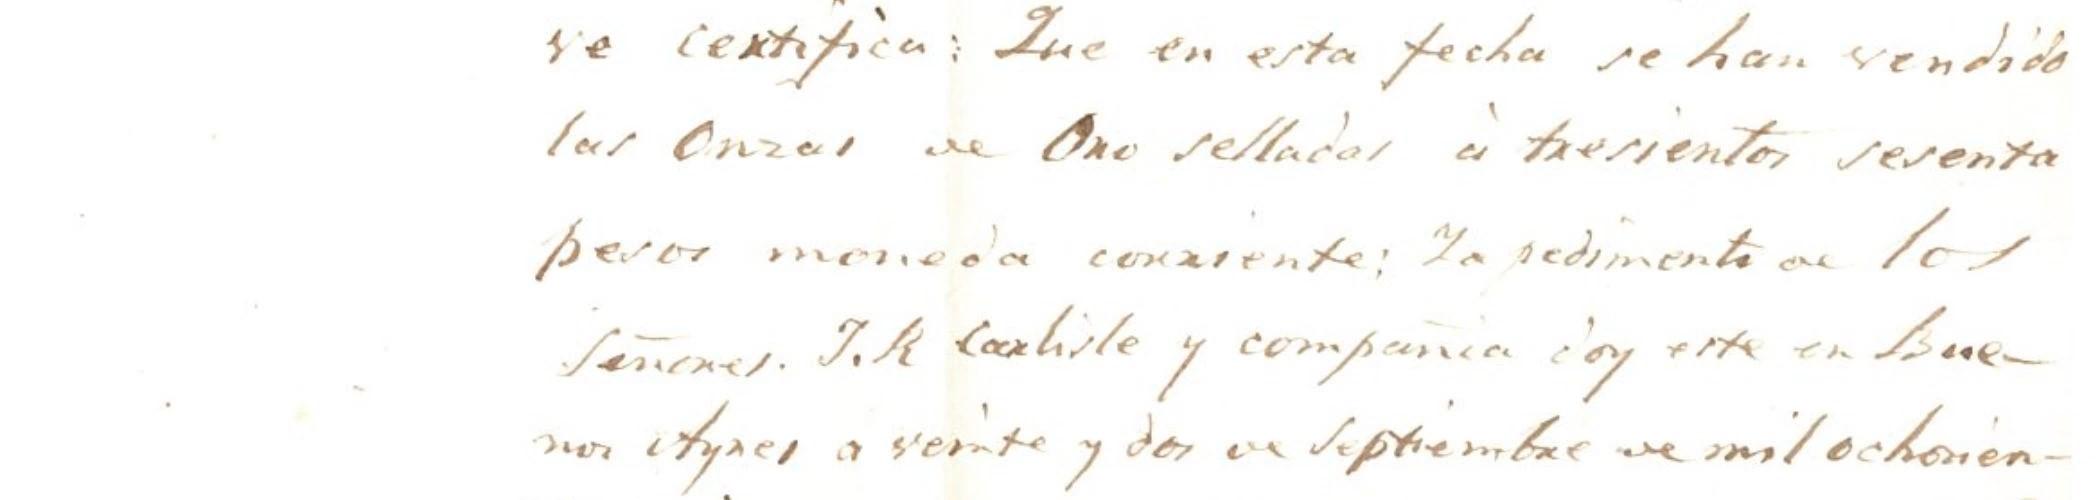 se certifica: Que en esta fecha se han vendido
las Onzas de Oro selladas à tresientos sesenta
pesos moneda corriente; Ya pedimento de los
Señores. J. R Carlisle y compañia doy este en Bue-
nos Ayres a veinte y dos de Septiembre de mil ochosien-